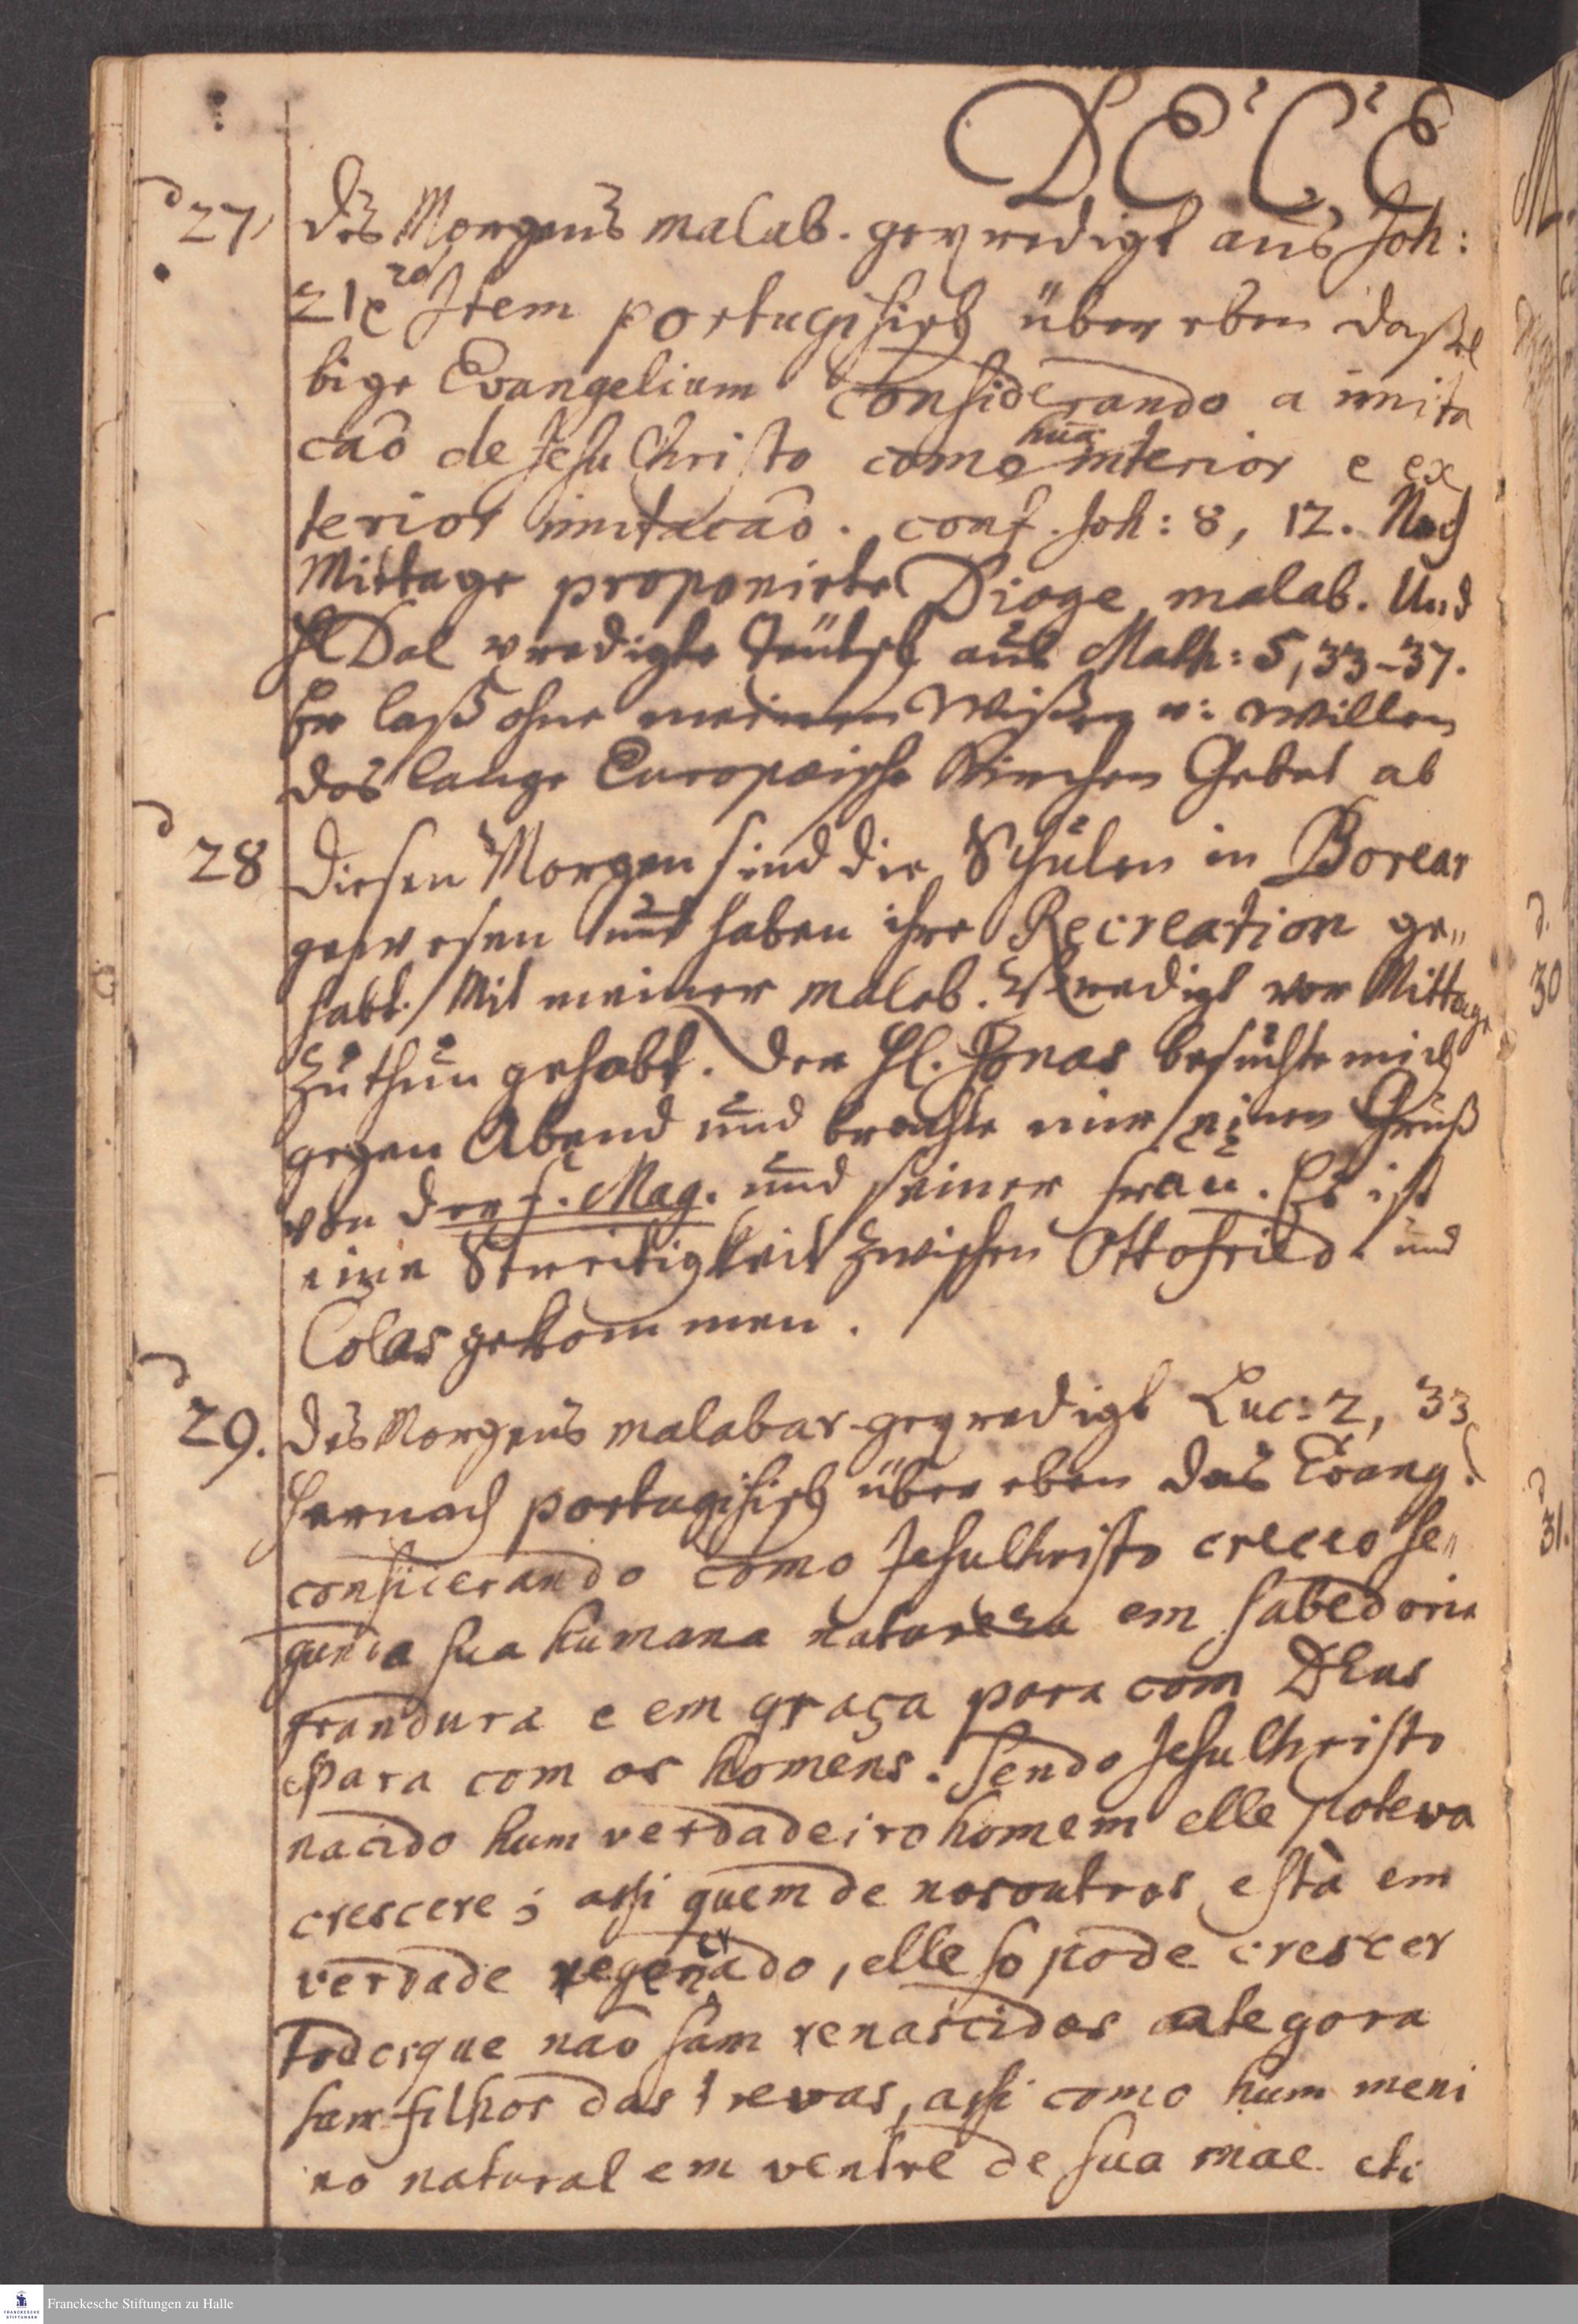 DECE
d 27, des Morgens malab. geprediget aus Joh:
21 c 20 Item portugisisch über eben daßel
bige Evangelium considerando a imita
caõ de Jesu Christo como hũa interior e ex
terior imitacaõ. conf. Joh: 8, 12. Nach
Mittage proponirte Diogo malab. Und
H Dal predigte Teütsch aus Math: 5, 33-37.
Er laß ohne meinen Wißen u: willen
das lange Europæische Kirchen Gebet ab
d 28 Diesen Morgen sind die Schulen in Borear
gewesen und haben ihre Recreation ge„
habt. Mit meiner malab. Predigt vor Mittage
zuthun gehabt. Der H. Jonas besuchte mich
gegen Abend und brachte mir einen Gruß
von der f. Mag. und seiner frau. Es ist
eine Streitigkeit zwischen Ottofried und
Colas gekommen.
d 29. Des Morgens malabar. geprediget Luc: 2, 33
hernach portugisisch über eben das Evang.
considerando como Jesu Christo creceo se„
gunda sua humana natureza em sabedoria
grandura e em graça para com DEus
e para com os homens. Sendo Jesu Christo
nacido hum verdadeiro homem elle poteva
crescere; assi quem de nosoutros està em
verdade regenerado, elle so pode crescer
Todosque naõ sam renascidos ategora
sam filhos das trevas, assi como hum meni
no natural em ventre de sua mae
d.
30
d
31.
Franckesche Stiftungen zu Halle